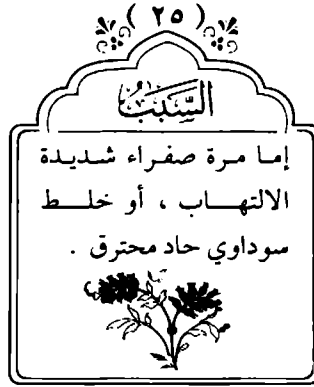 (٢٥)
السَّبَبُ
إما مرة صفراء شديدة
الالتهاب ، أو خلط
سوداوي حاد محترق .